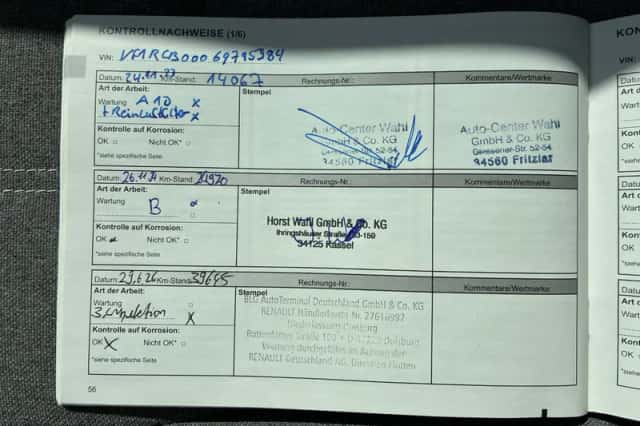 KONTROLLNACHWEISE (1/6)
KON
VIN:
VIN:
Datum: 24.11.23 Km-Stand: 14067 Rechnungs-Nr.: Kommentare/Wertmarke
Art der Arbeit: Stempel
Wartung A10 x
+ Reinluftfilter x
Auto-Center Wahl
GmbH & Co. KG
34560 Fritzlar
Auto-Center Wahl
GmbH & Co. KG
34560 Fritzlar
Kontrolle auf Korrosion:
OK □ Nicht OK* □
*siehe spezifische Seite
Datum: 26.11.24 Km-Stand: Rechnungs-Nr.: Kommentare/Wertmarke
Art der Arbeit: Stempel
Wartung B
Horst Wahl GmbH & Co. KG
Ihringshäuser Straße
34125 Kassel
Kontrolle auf Korrosion:
OK Nicht OK* □
*siehe spezifische Seite
Datum: Km-Stand: Rechnungs-Nr.: Kommentare/Wertmarke
Art der Arbeit: Stempel
Wartung
3. Inspektion x
BLG AutoTerminal Deutschland GmbH & Co. KG
RENAULT Händlerkonto Nr.
Niederlassung Duisburg
Duisburg
Wartung durchgeführt im Auftrag der
RENAULT Deutschland AG,
Kontrolle auf Korrosion:
OK x Nicht OK* □
*siehe spezifische Seite
56